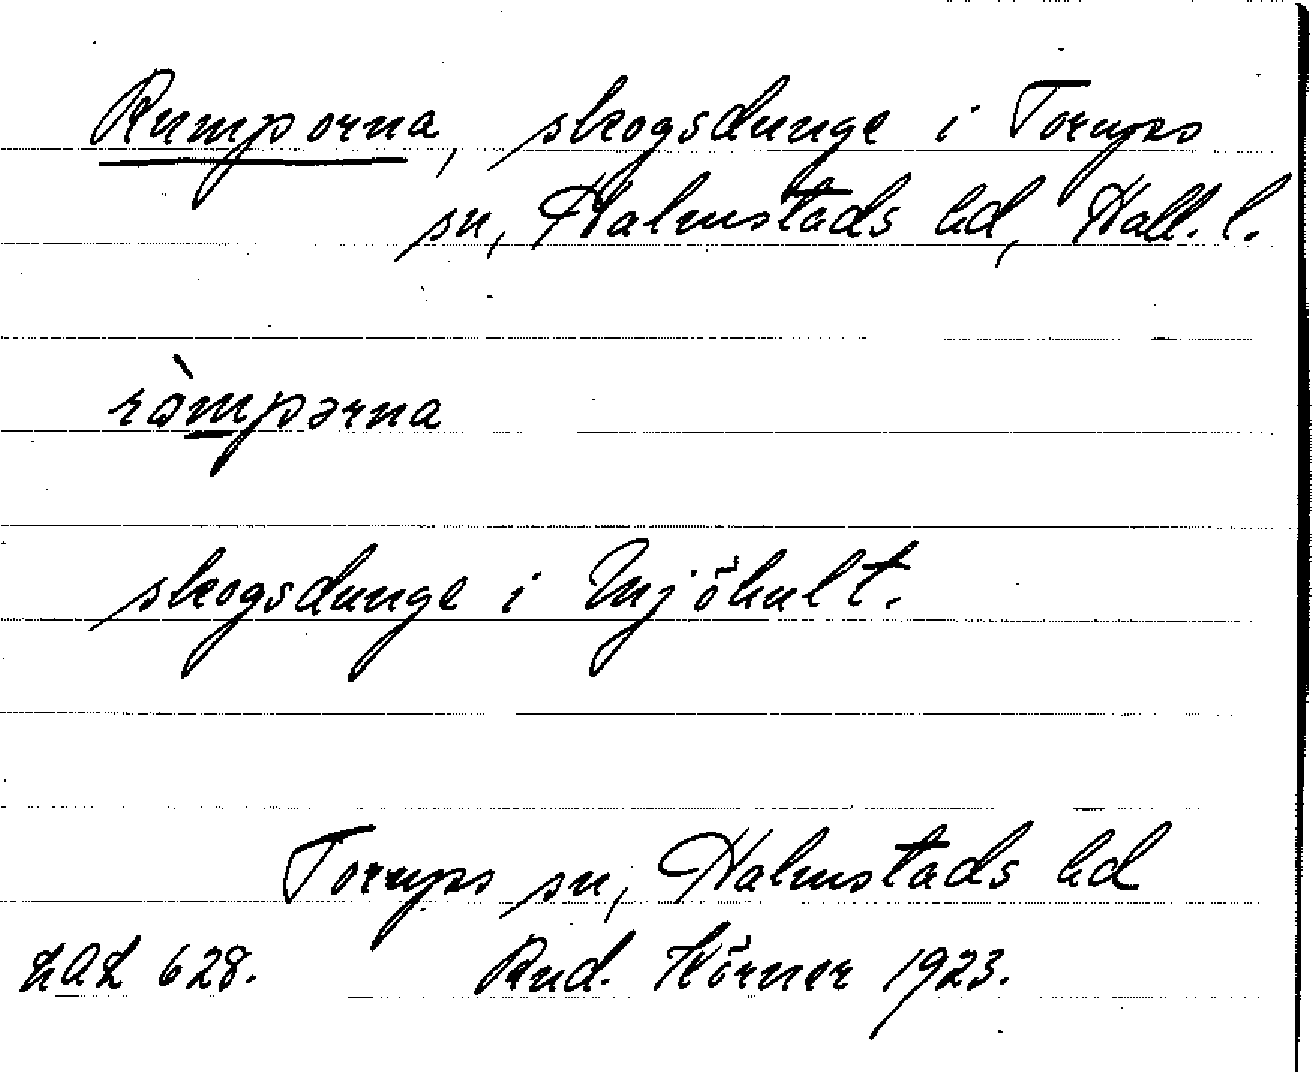 Rumporna, skogsdunge i Torups
sn, Halmstads hd, Hall. l.
ròmpərna
skogsdunge i Mjöhult.
Torups sn, Halmstads hd
LAL 628. Rud. Hörner 1923.